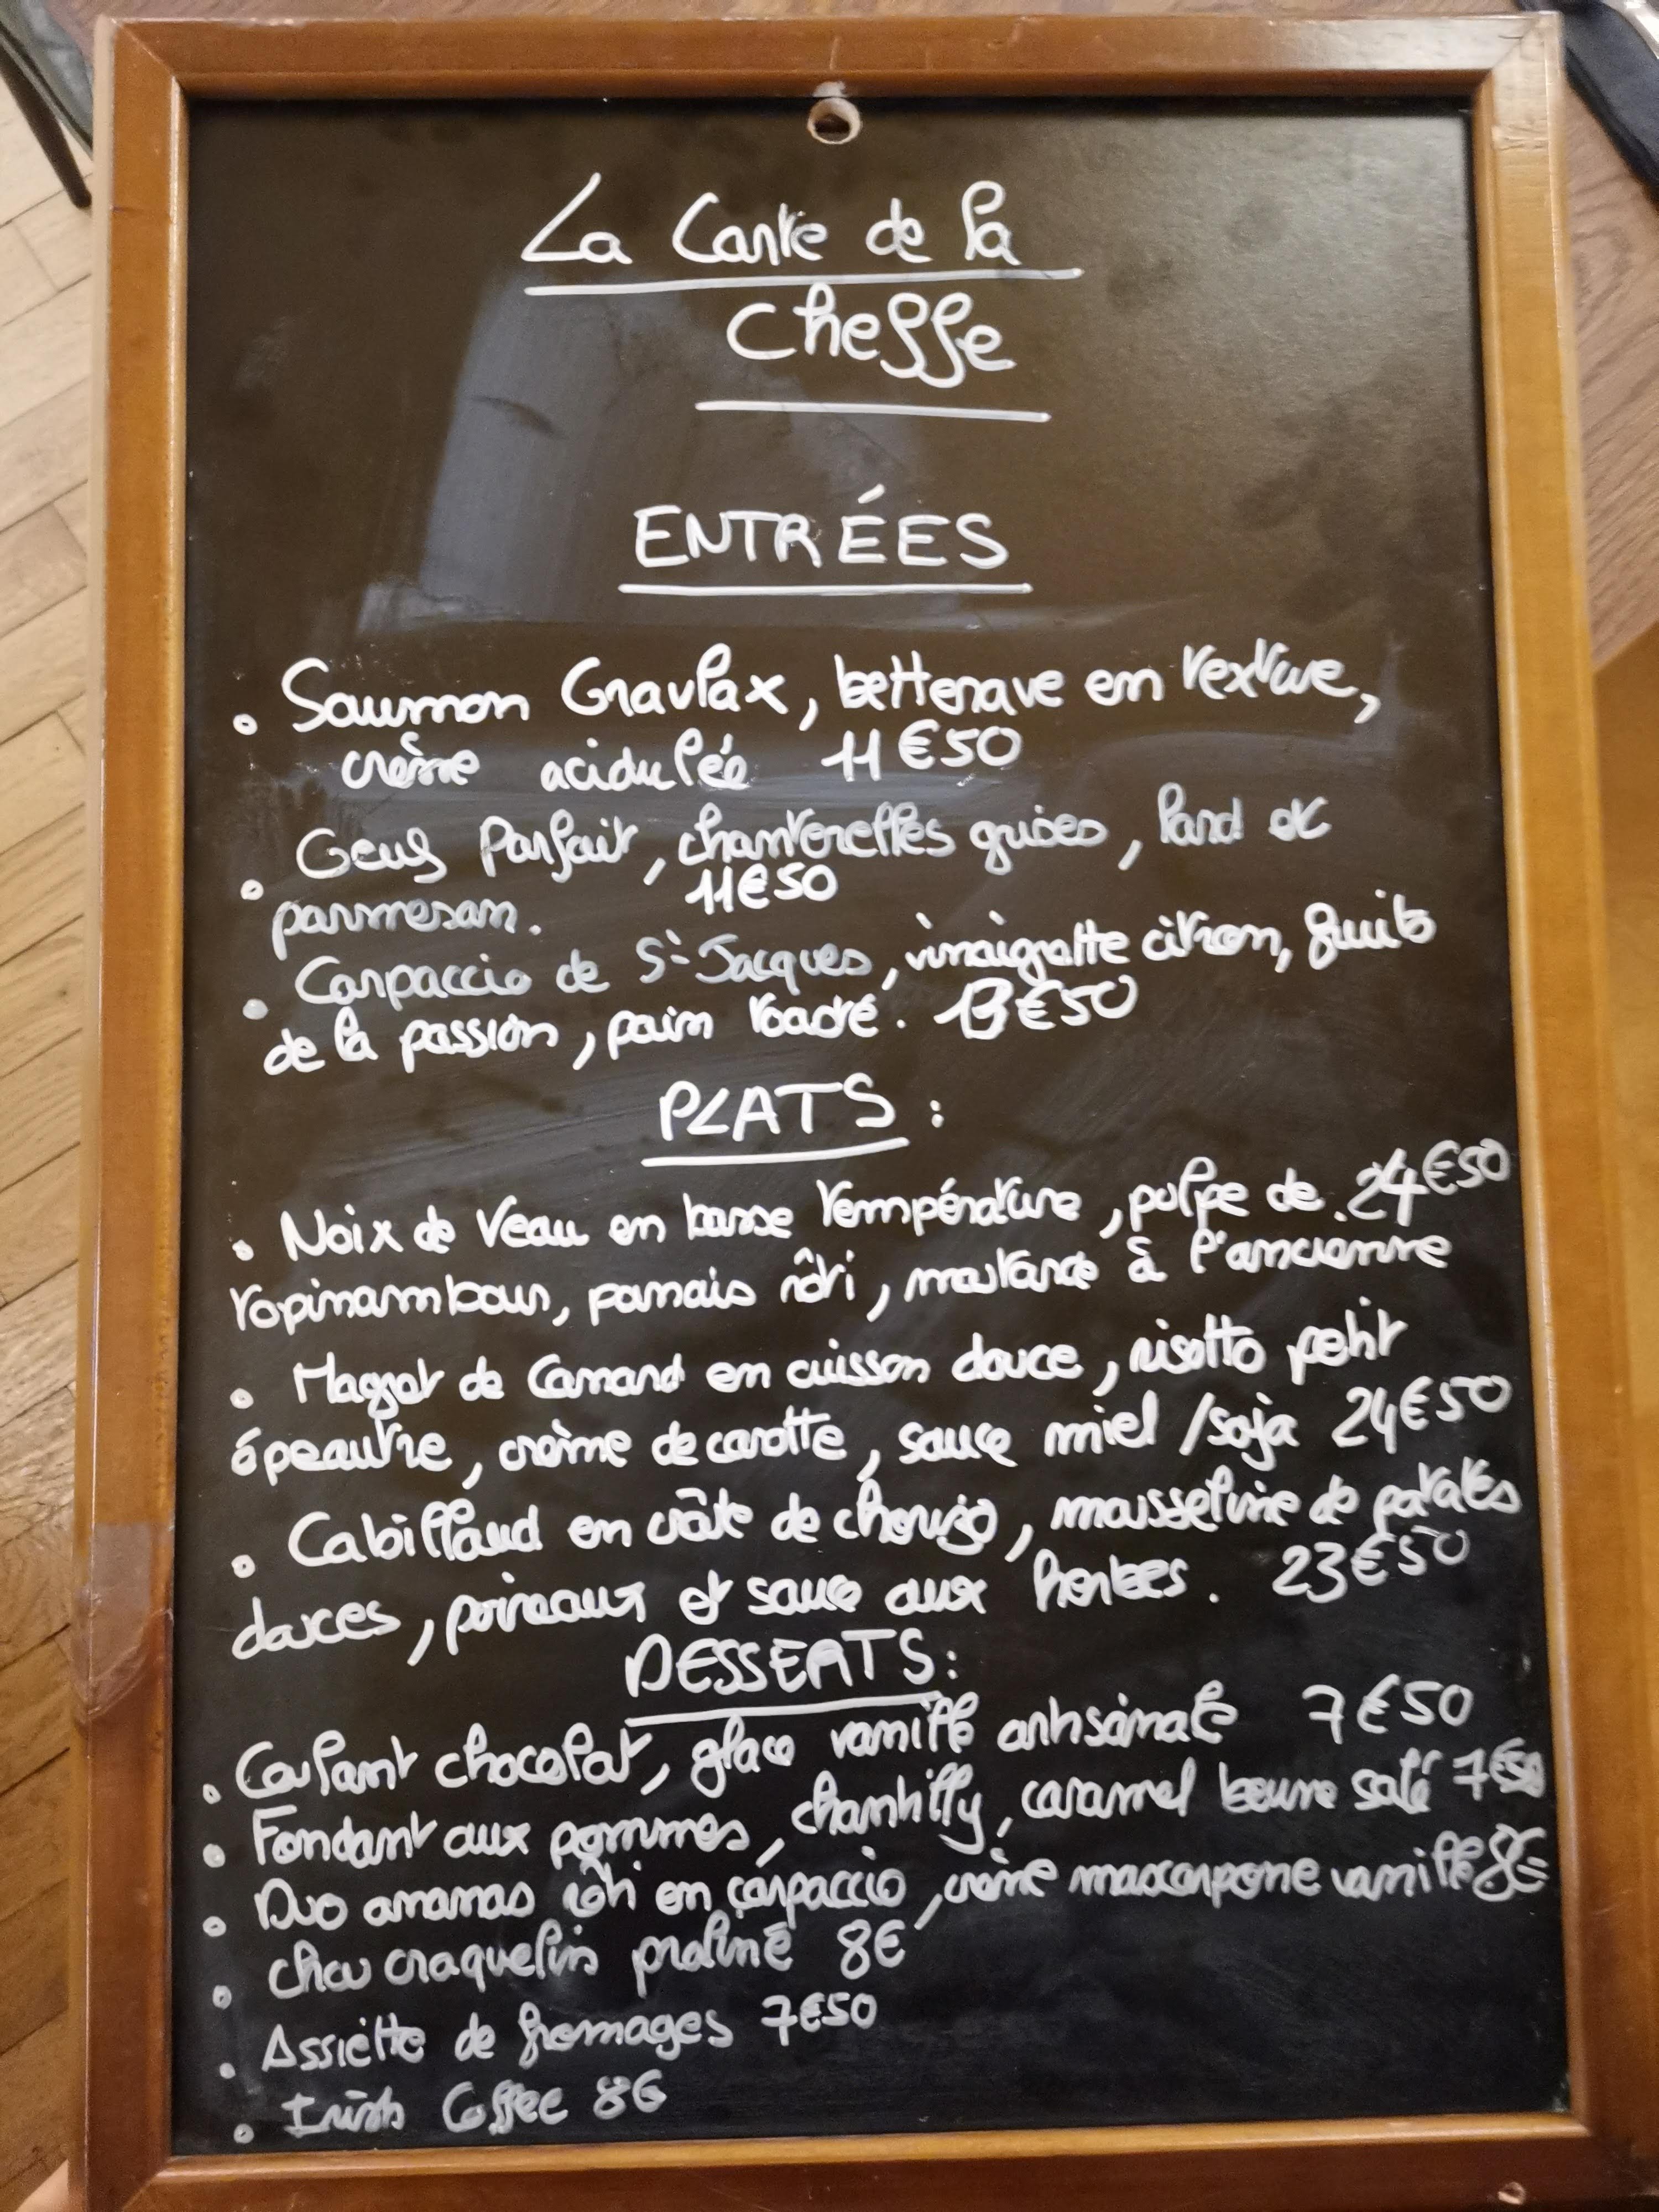 La Carte de la
Cheffe
ENTRÉES
• Saumon Gravlax, betterave en texture,
crème acidulée 11€50
• Oeuf Parfait, chanterelles grises, lard et
parmesan. 11€50
• Carpaccio de St Jacques, vinaigrette citron, fruits
de la passion, pain toasté. 13€50
PLATS :
• Noix de Veau en basse température, pulpe de 24€50
topinambour, panais rôti, moutarde à l'ancienne
• Magret de Canard en cuisson douce, risotto petit
épeautre, crème de carotte, sauce miel /soja 24€50
• Cabillaud en croûte de chorizo, mousseline de patates
douces, poireaux et sauce aux herbes. 23€50
DESSERTS :
• Coulant chocolat, glace vanille artisanale 7€50
• Fondant aux pommes, chantilly, caramel beurre salé 7€50
• Duo ananas rôti en carpaccio, crème mascarpone vanille 8€
• chou craquelin praliné 8€
• Assiette de fromages 7€50
• Irish Coffee 8€